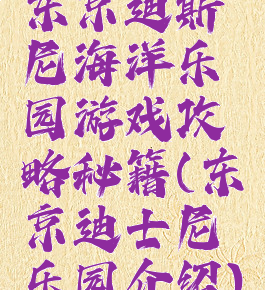 东京迪斯
尼海洋乐
园游戏攻
略秘籍(东
京迪士尼
乐园介绍)